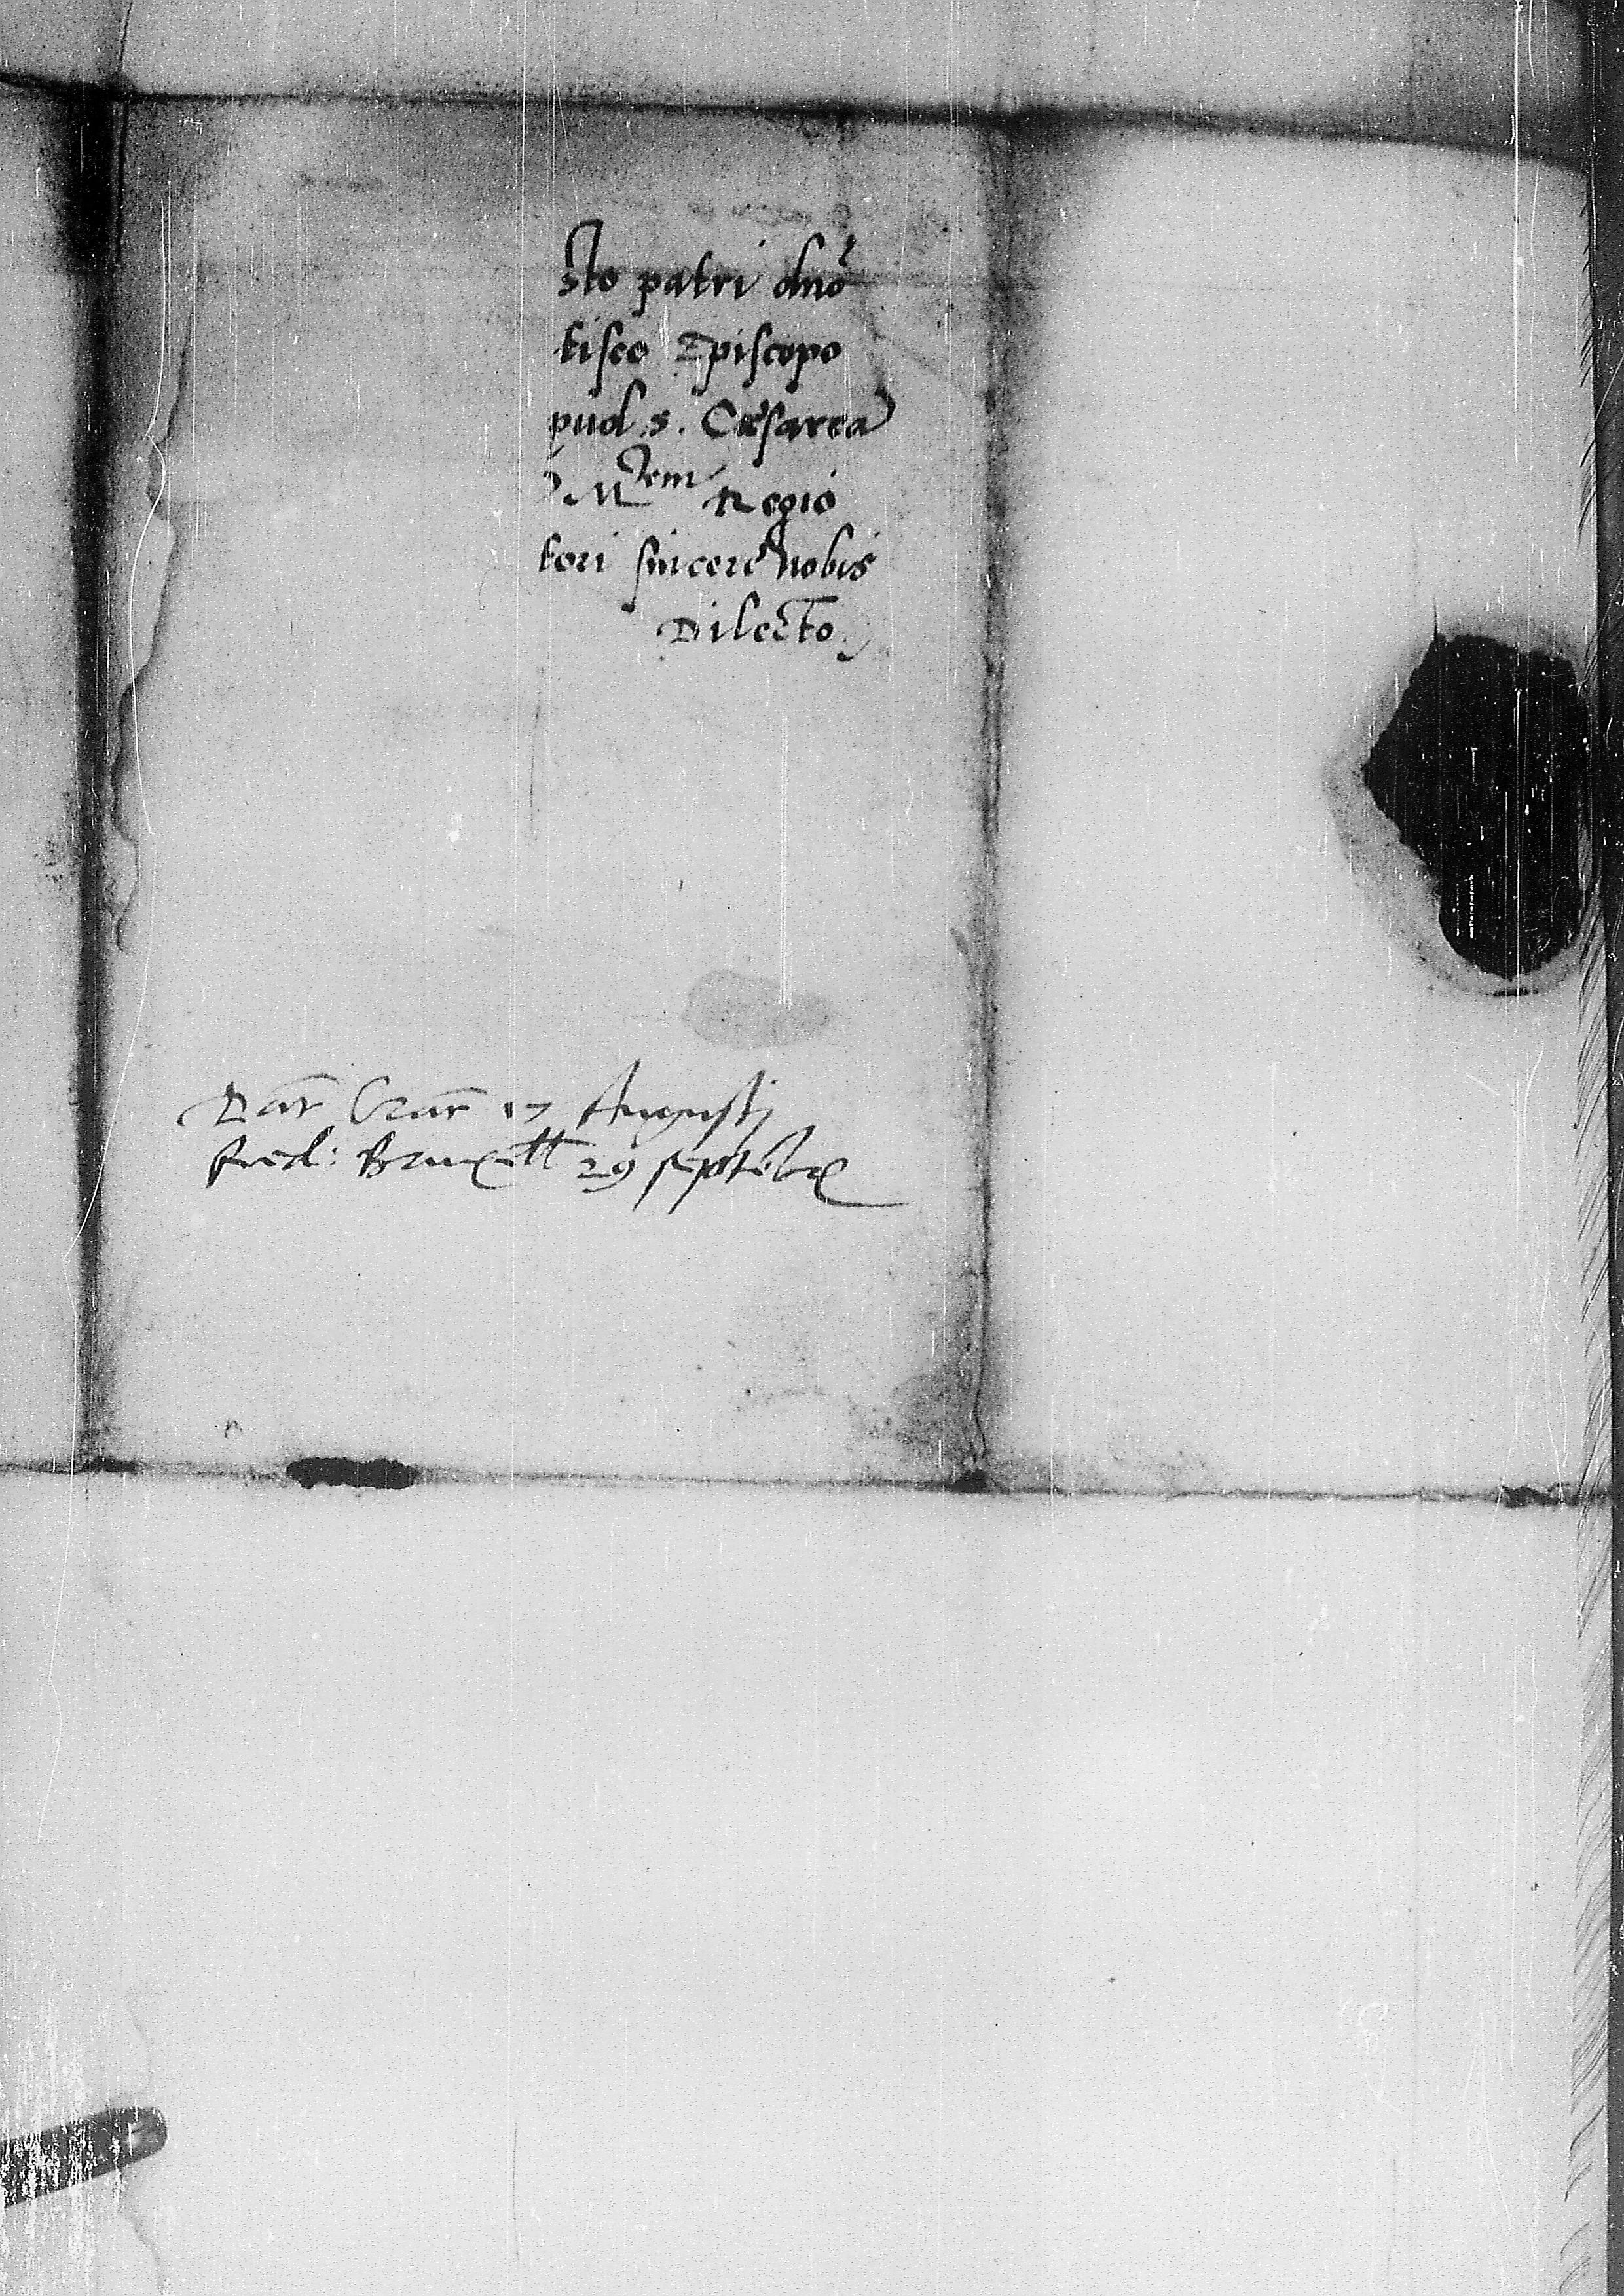 sto patri dno
tisco Episcopo
pud s. Caesarea
M tem Regio
tori sincere nobis
Dilecto
Dat Crac 17 Augusti
Red: Bruxell 29 septebr